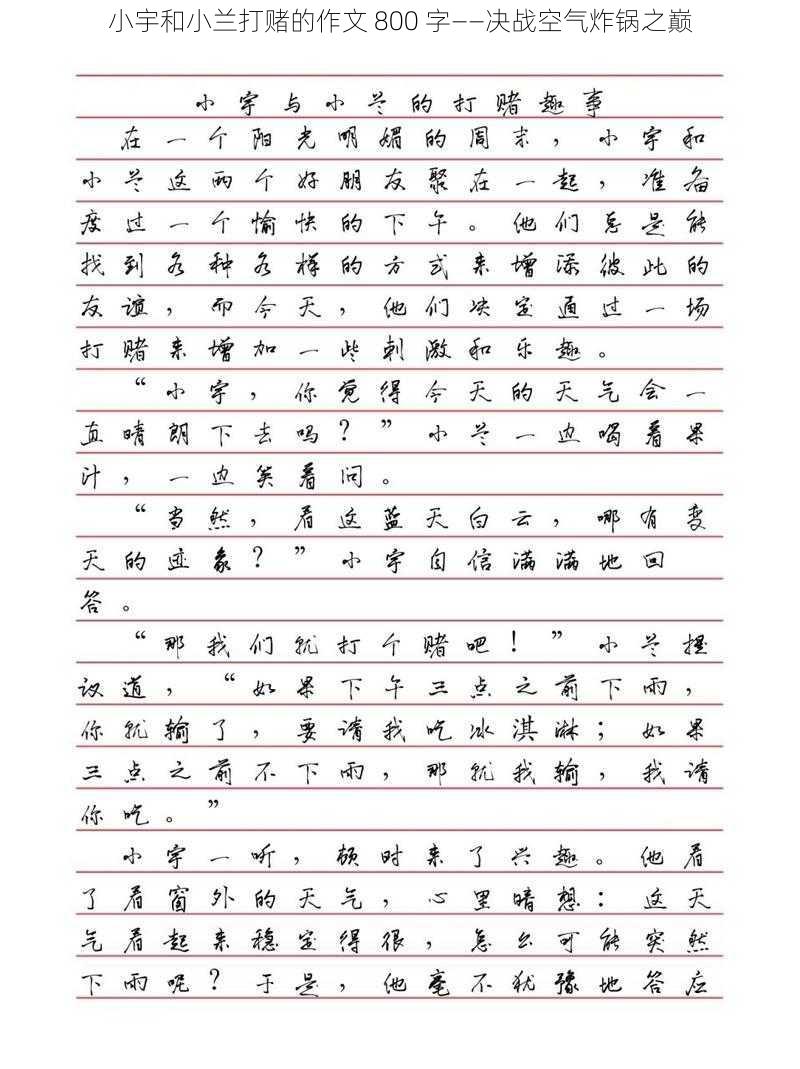 小宇和小兰打赌的作文 800 字——决战空气炸锅之巅
小宇与小兰的打赌趣事
在一个阳光明媚的周末，小宇和
小兰这两个好朋友聚在一起，准备
度过一个愉快的下午。他们总是能
找到各种各样的方式来增添彼此的
友谊，而今天，他们决定通过一场
打赌来增加一些刺激和乐趣。
“小宇，你觉得今天的天气会一
直晴朗下去吗？”小兰一边喝着果
汁，一边笑着问。
“当然，看这蓝天白云，哪有变
天的迹象？”小宇自信满满地回
答。
“那我们就打个赌吧！”小兰提
议道，“如果下午三点之前下雨，
你就输了，要请我吃冰淇淋；如果
三点之前不下雨，那就我输，我请
你吃。”
小宇一听，顿时来了兴趣。他看
了看窗外的天气，心里暗想：这天
气看起来稳定得很，怎么可能突然
下雨呢？于是，他毫不犹豫地答应